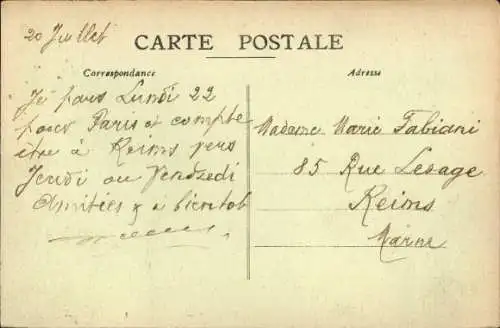 20 Juillet
CARTE POSTALE
Correspondance
Adresse
Je pars Lundi 22
pour Paris et compte
être à Reims vers
Jeudi ou Vendredi
Amitiés & a bientot
Madame Marie Fabiani
85 Rue Lesage
Reims
Marne